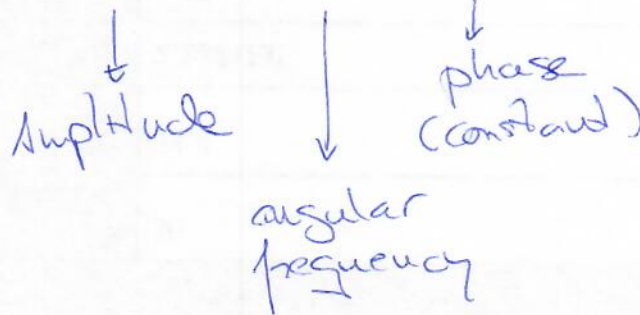 Amplitude
phase
(constant)
angular
frequency